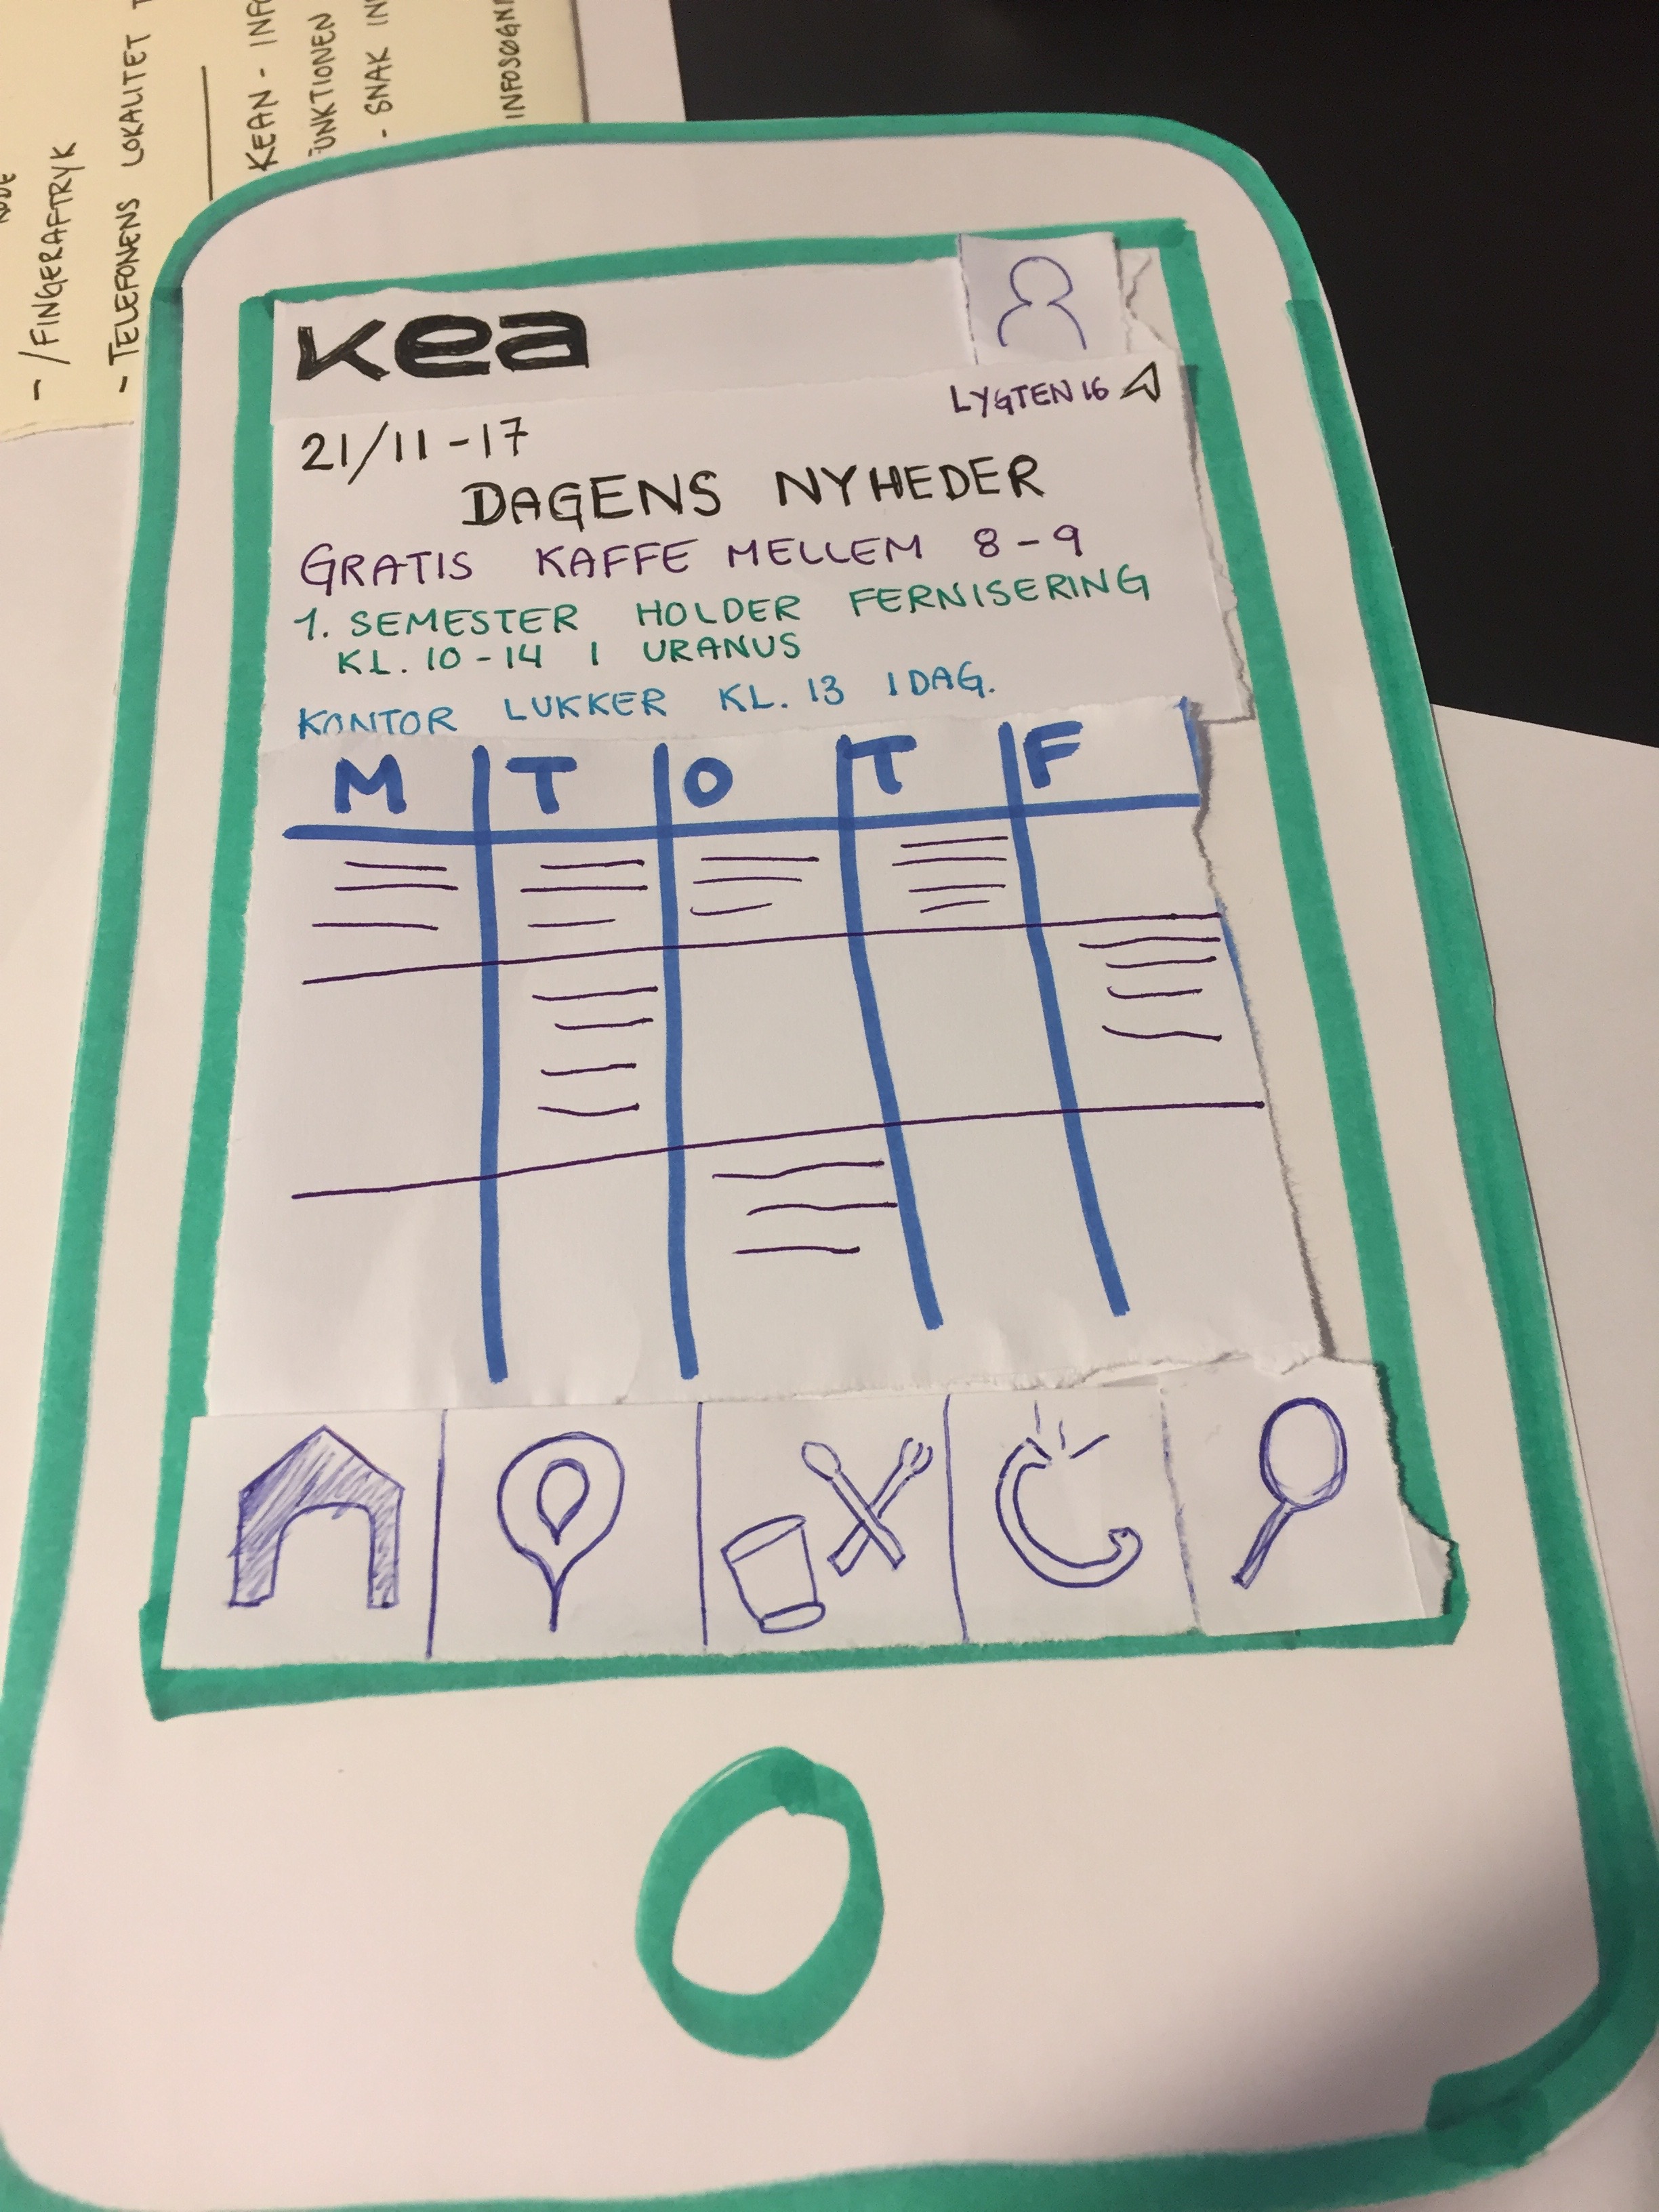 - /FINGERAFTRYK
- TELEFONENS LOKALITET
KEAN - INFO
- SNAK
kea
LYGTEN 16
21/11-17
DAGENS NYHEDER
GRATIS KAFFE MELLEM 8-9
1. SEMESTER HOLDER FERNISERING
KL. 10-14 I URANUS
KONTOR LUKKER KL. 13 IDAG.
M T O T F